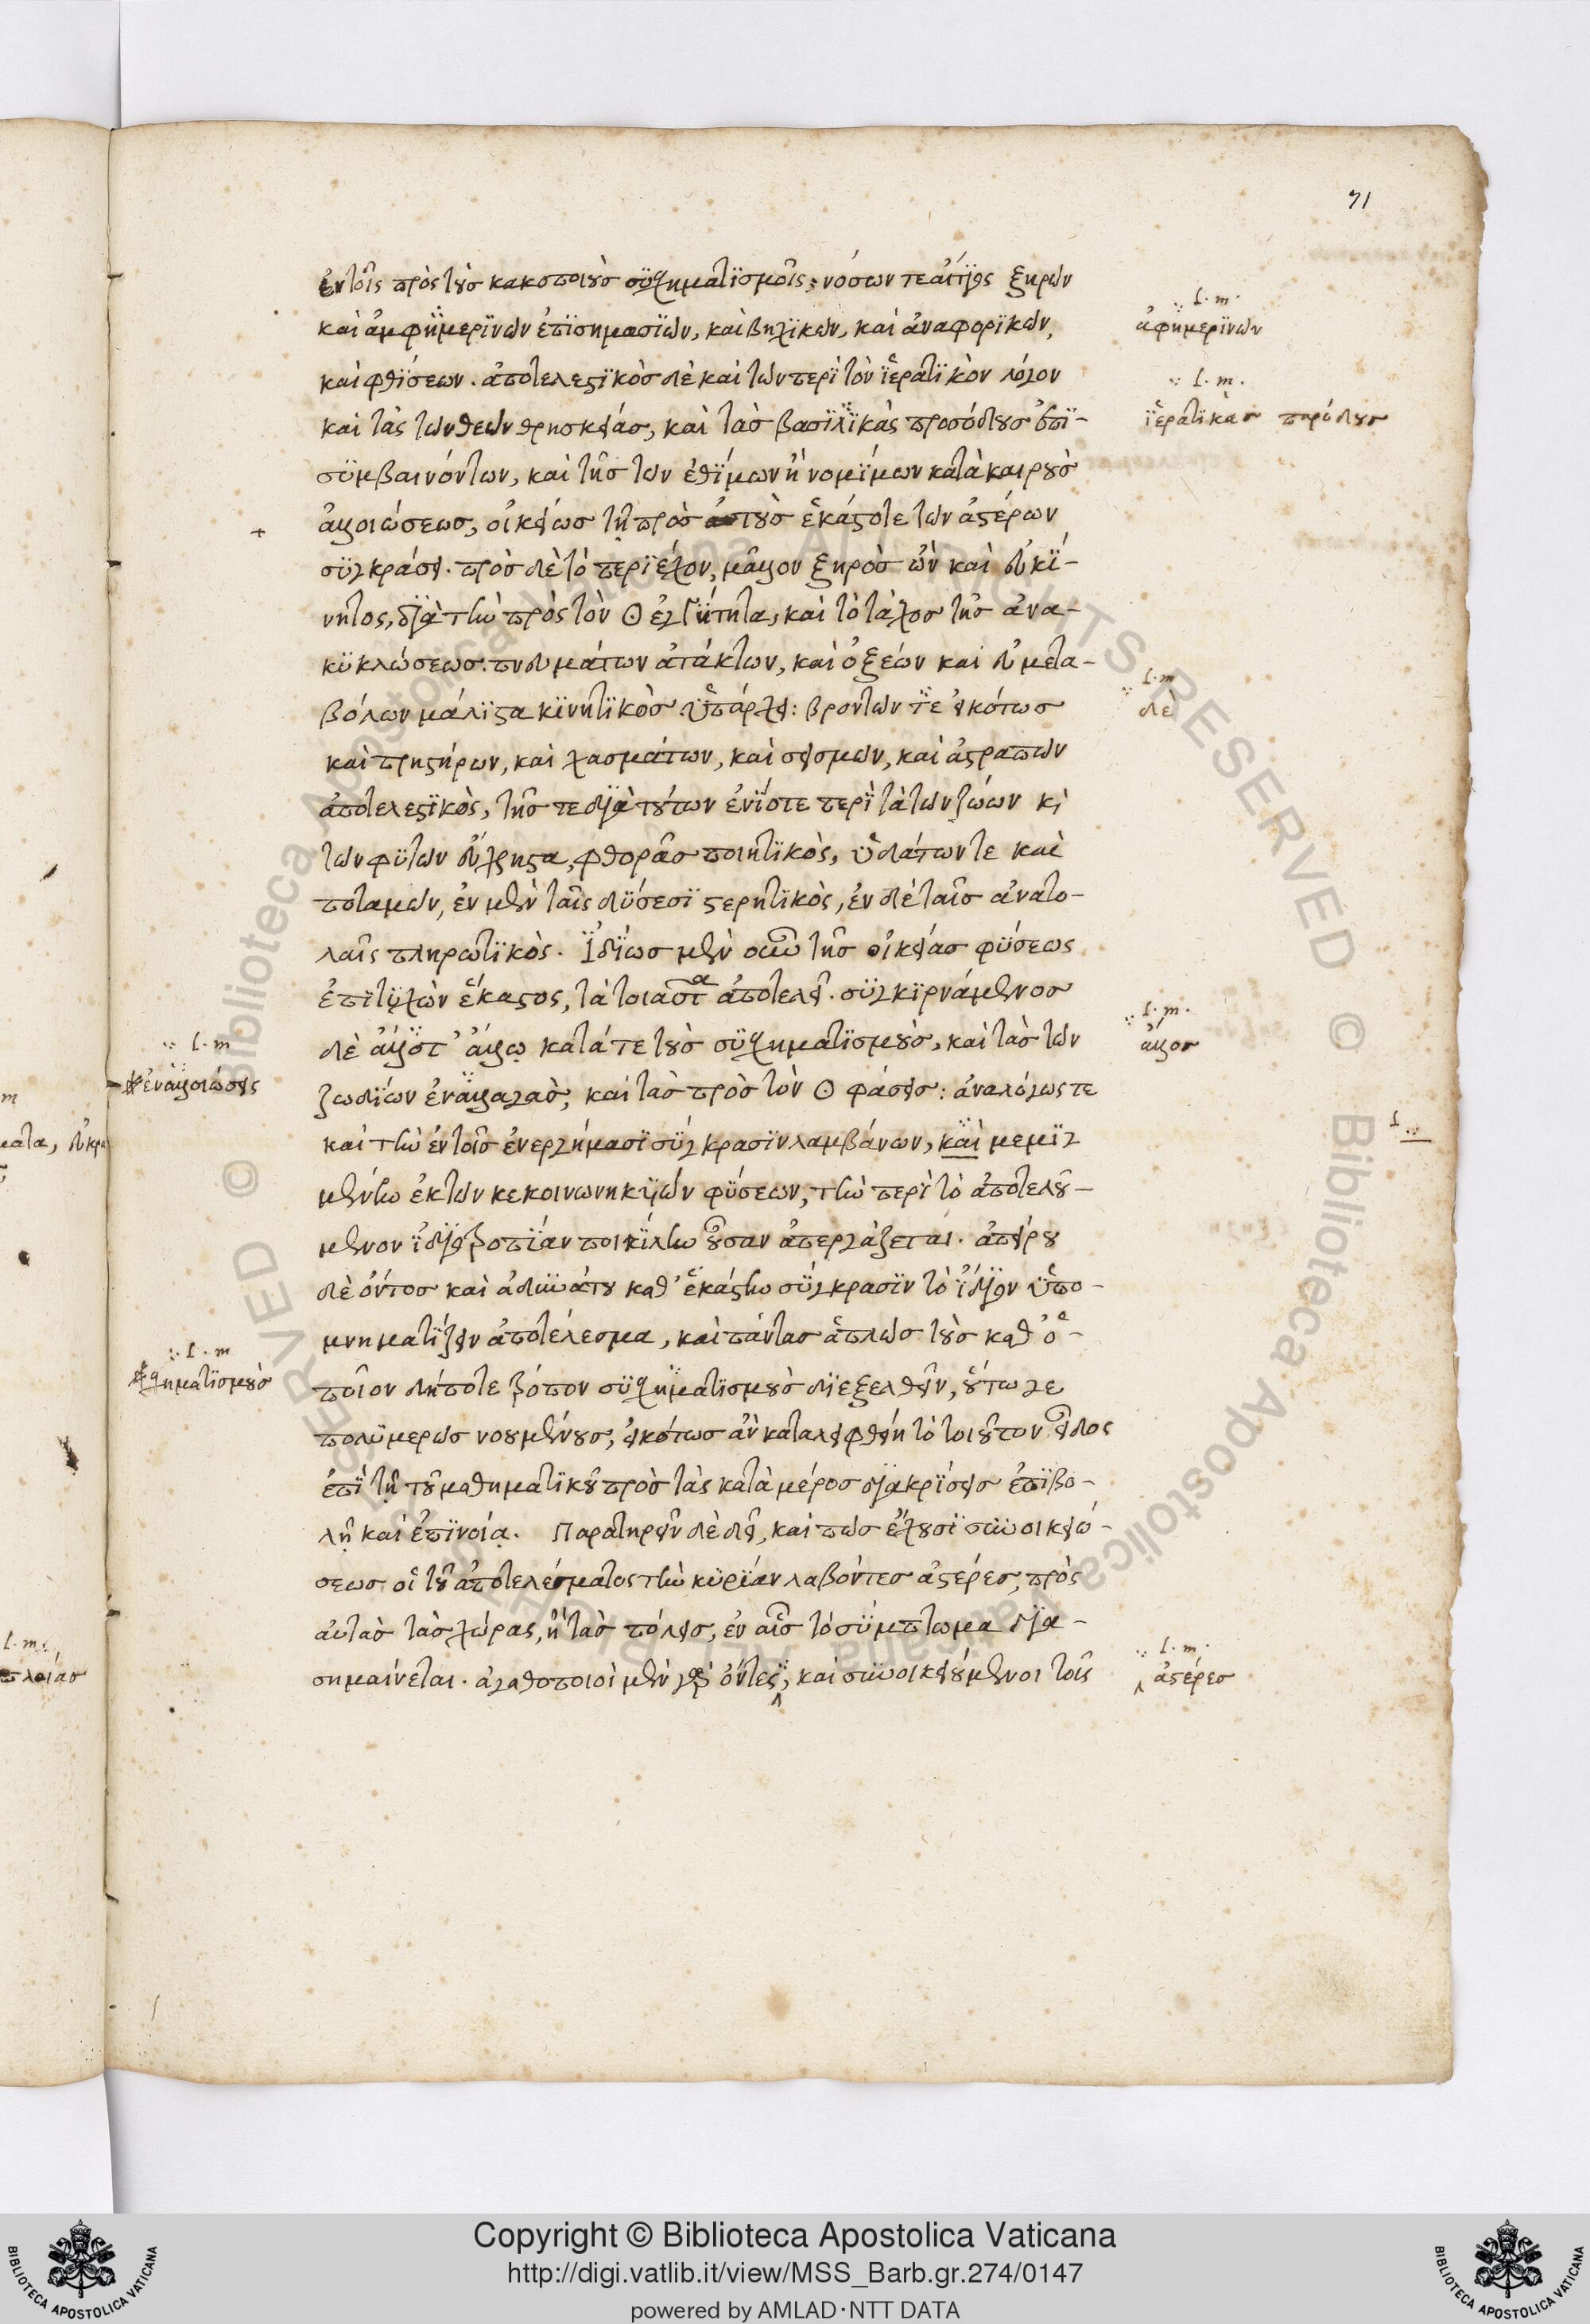 71
ἐν τοῖς πρὸς τοὺς κακοποιοὺς συσχηματισμοῖς; νόσων τε αἴτιος ξηρῶν
καὶ ἀμφημερινῶν ἐπισημασιῶν, καὶ βηχικῶν, καὶ ἀναφορικῶν,
καὶ φθίσεων. ἀποτελεστικὸς δὲ καὶ τῶν περὶ τὸν ἱερατικὸν λόγον
καὶ τὰς τῶν θεῶν θρησκείας, καὶ τὰς βασιλικὰς προσόδους ἐπι-
συμβαινόντων, καὶ τῆς τῶν ἐθίμων ἢ νομίμων κατὰ καιροὺς
ἀλλοιώσεως, οἰκείως τῇ πρὸς αὐτοὺς ἑκάστοτε τῶν ἀστέρων
συγκράσει. πρὸς δὲ τὸ περιέχον, μᾶλλον ξηρὸς ὢν καὶ εὐκί-
νητος, διὰ τὴν πρὸς τὸν ☉ ἐγγύτητα, καὶ τὸ τάχος τῆς ἀνα-
κυκλώσεως. πνευμάτων ἀτάκτων, καὶ ὀξέων καὶ εὐμετα-
βόλων μάλιστα κινητικὸς ὑπάρχει: βροντῶν τε εἰκότως
καὶ πρηστήρων, καὶ χασμάτων, καὶ σεισμῶν, καὶ ἀστραπῶν
ἀποτελεστικὸς, τῆς τε διὰ τούτων ἐνίοτε περὶ τὰ τῶν ζώων κὶ
τῶν φυτῶν εὔχρηστα, φθορᾶς ποιητικὸς, ὑδάτων τε καὶ
ποταμῶν, ἐν μὲν ταῖς δύσεσι στερητικὸς, ἐν δὲ ταῖς ἀνατο-
λαῖς πληρωτικὸς. Ἰδίως μὲν οὖν τῆς οἰκείας φύσεως
ἐπιτυχὼν ἕκαστος, τὰ τοιαῦτα ἀποτελεῖ. συγκιρνάμενος
δὲ ἄλλοτ' ἄλλῳ κατά τε τοὺς συσχηματισμοὺς, καὶ τὰς τῶν
ζωδίων ἐναλλαγὰς, καὶ τὰς πρὸς τὸν ☉ φάσεις: ἀναλόγως τε
καὶ τὴν ἐν τοῖς ἐνεργήμασι σύγκρασιν λαμβάνων, καὶ μεμιγ
μένην ἐκ τῶν κεκοινωνηκυιῶν φύσεων, τὴν περὶ τὸ ἀποτελού-
μενον ἰδιοτροπίαν ποικίλην οὖσαν ἀπεργάζεται. ἀπείρου
δὲ ὄντος καὶ ἀδυνάτου καθ' ἑκάστην σύγκρασιν τὸ ἴδιον ὑπο-
μνηματίζειν ἀποτέλεσμα, καὶ πάντας ἁπλῶς τοὺς καθ' ὁ-
ποῖον δήποτε τρόπον συσχηματισμοὺς διεξελθεῖν, οὕτω γε
πολυμερῶς νοουμένους, εἰκότως ἂν καταλειφθείη τὸ τοιοῦτον εἶδος
ἐπὶ τῇ τοῦ μαθηματικοῦ πρὸς τὰς κατὰ μέρος διακρίσεις ἐπιβο-
λῇ καὶ ἐπινοίᾳ. Παρατηρεῖν δὲ δεῖ, καὶ πῶς ἔχουσι συνοικειώ-
σεως οἱ τοῦ ἀποτελέσματος τὴν κυρίαν λαβόντες ἀστέρες, πρὸς
αὐτὰς τὰς χώρας, ἢ τὰς πόλεις, ἐν αἷς τὸ σύμπτωμα δια-
σημαίνεται. ἀγαθοποιοὶ μὲν γὰρ ὄντες, καὶ συνοικειούμενοι τοῖς
l. m.
ἀφημερινῶν
l. m.
ἱερατικὰς προόδους
l. m
δὲ
l. m.
ἄλλος
l. m
ἐναλλοιώσεις
l. m
σχηματισμοὺς
l. m.
ἀστέρες
l. m.
Copyright © Biblioteca Apostolica Vaticana
http://digi.vatlib.it/view/MSS_Barb.gr.274/0147
powered by AMLAD·NTT DATA
BIBLIOTECA APOSTOLICA VATICANA
BIBLIOTECA APOSTOLICA VATICANA